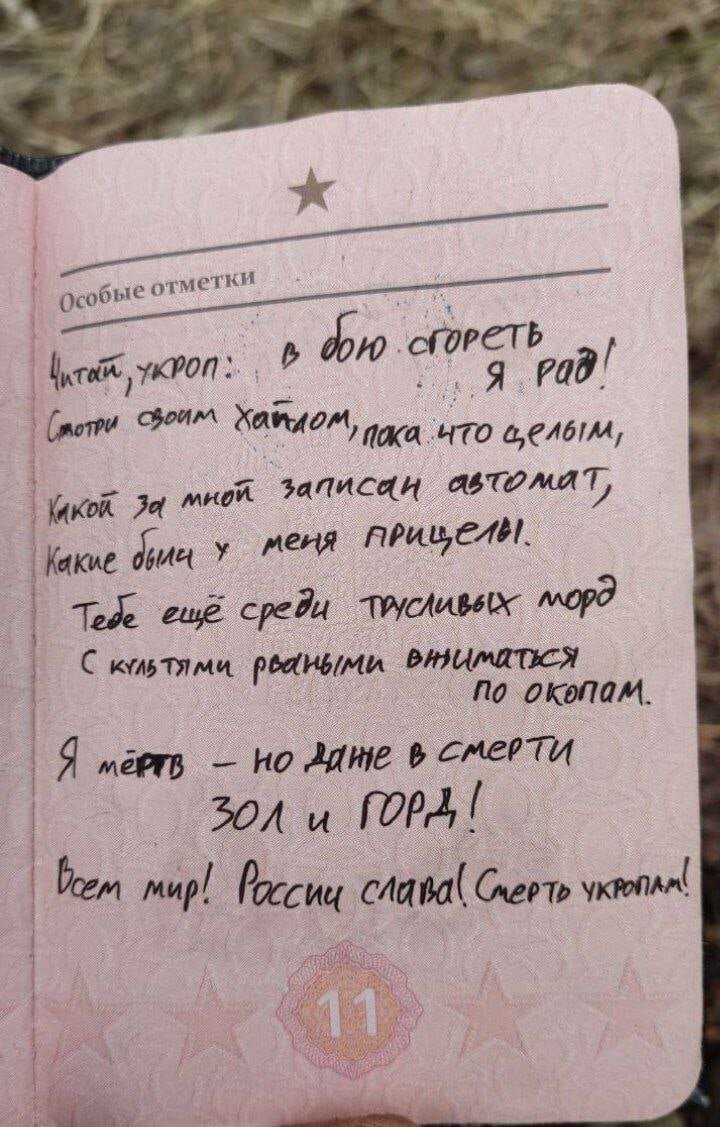 Особые отметки
Читай, укроп: в бою сгореть
я рад!
Смотри своим хайлом, пока что целым,
Какой за мной записан автомат,
Какие были у меня прицелы.
Тебе ещё среди трусливых морд
С культями рваными вжиматься
по окопам.
Я мёртв – но даже в смерти
ЗОЛ и ГОРД!
Всем мир! России слава! Смерть укропам!
11